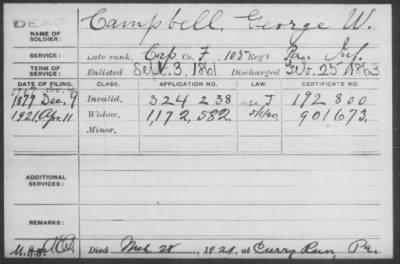 DEAD
NAME OF SOLDIER: Campbell, George W.
SERVICE: Late rank, Corp Co. F, 105 Reg't Pa. Inf.
TERM OF SERVICE: Enlisted Sept. 3, 1861 Discharged Feb. 25, 1863
DATE OF FILING. CLASS. APPLICATION NO. LAW. CERTIFICATE NO.
1879 Dec. 9 Invalid, 324 238 J 192 800
1921, Apr. 11 Widow, 1172,582 5/1/20 901673
Minor,
ADDITIONAL SERVICES:
REMARKS:
Died Mch 28, 1921, at Curry Run, Pa.